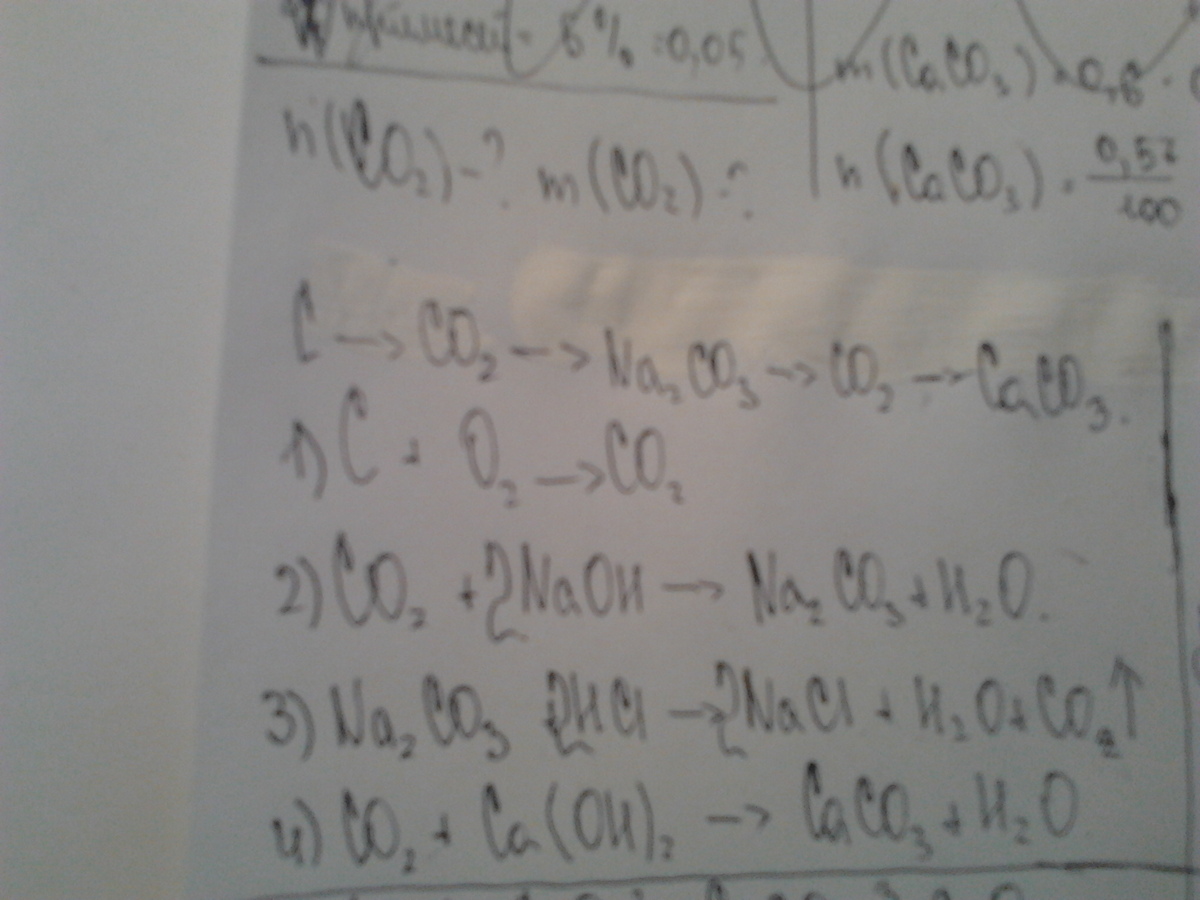 примесей - 5% = 0,05
n(CO₂) - ? m(CO₂) - ?
m(CaCO₃) = 0,6 ·
n(CaCO₃) = 0,57/100
C → CO₂ → Na₂CO₃ → CO₂ → CaCO₃.
1) C + O₂ → CO₂
2) CO₂ + 2NaOH → Na₂CO₃ + H₂O.
3) Na₂CO₃ + 2HCl → 2NaCl + H₂O + CO₂↑
4) CO₂ + Ca(OH)₂ → CaCO₃ + H₂O